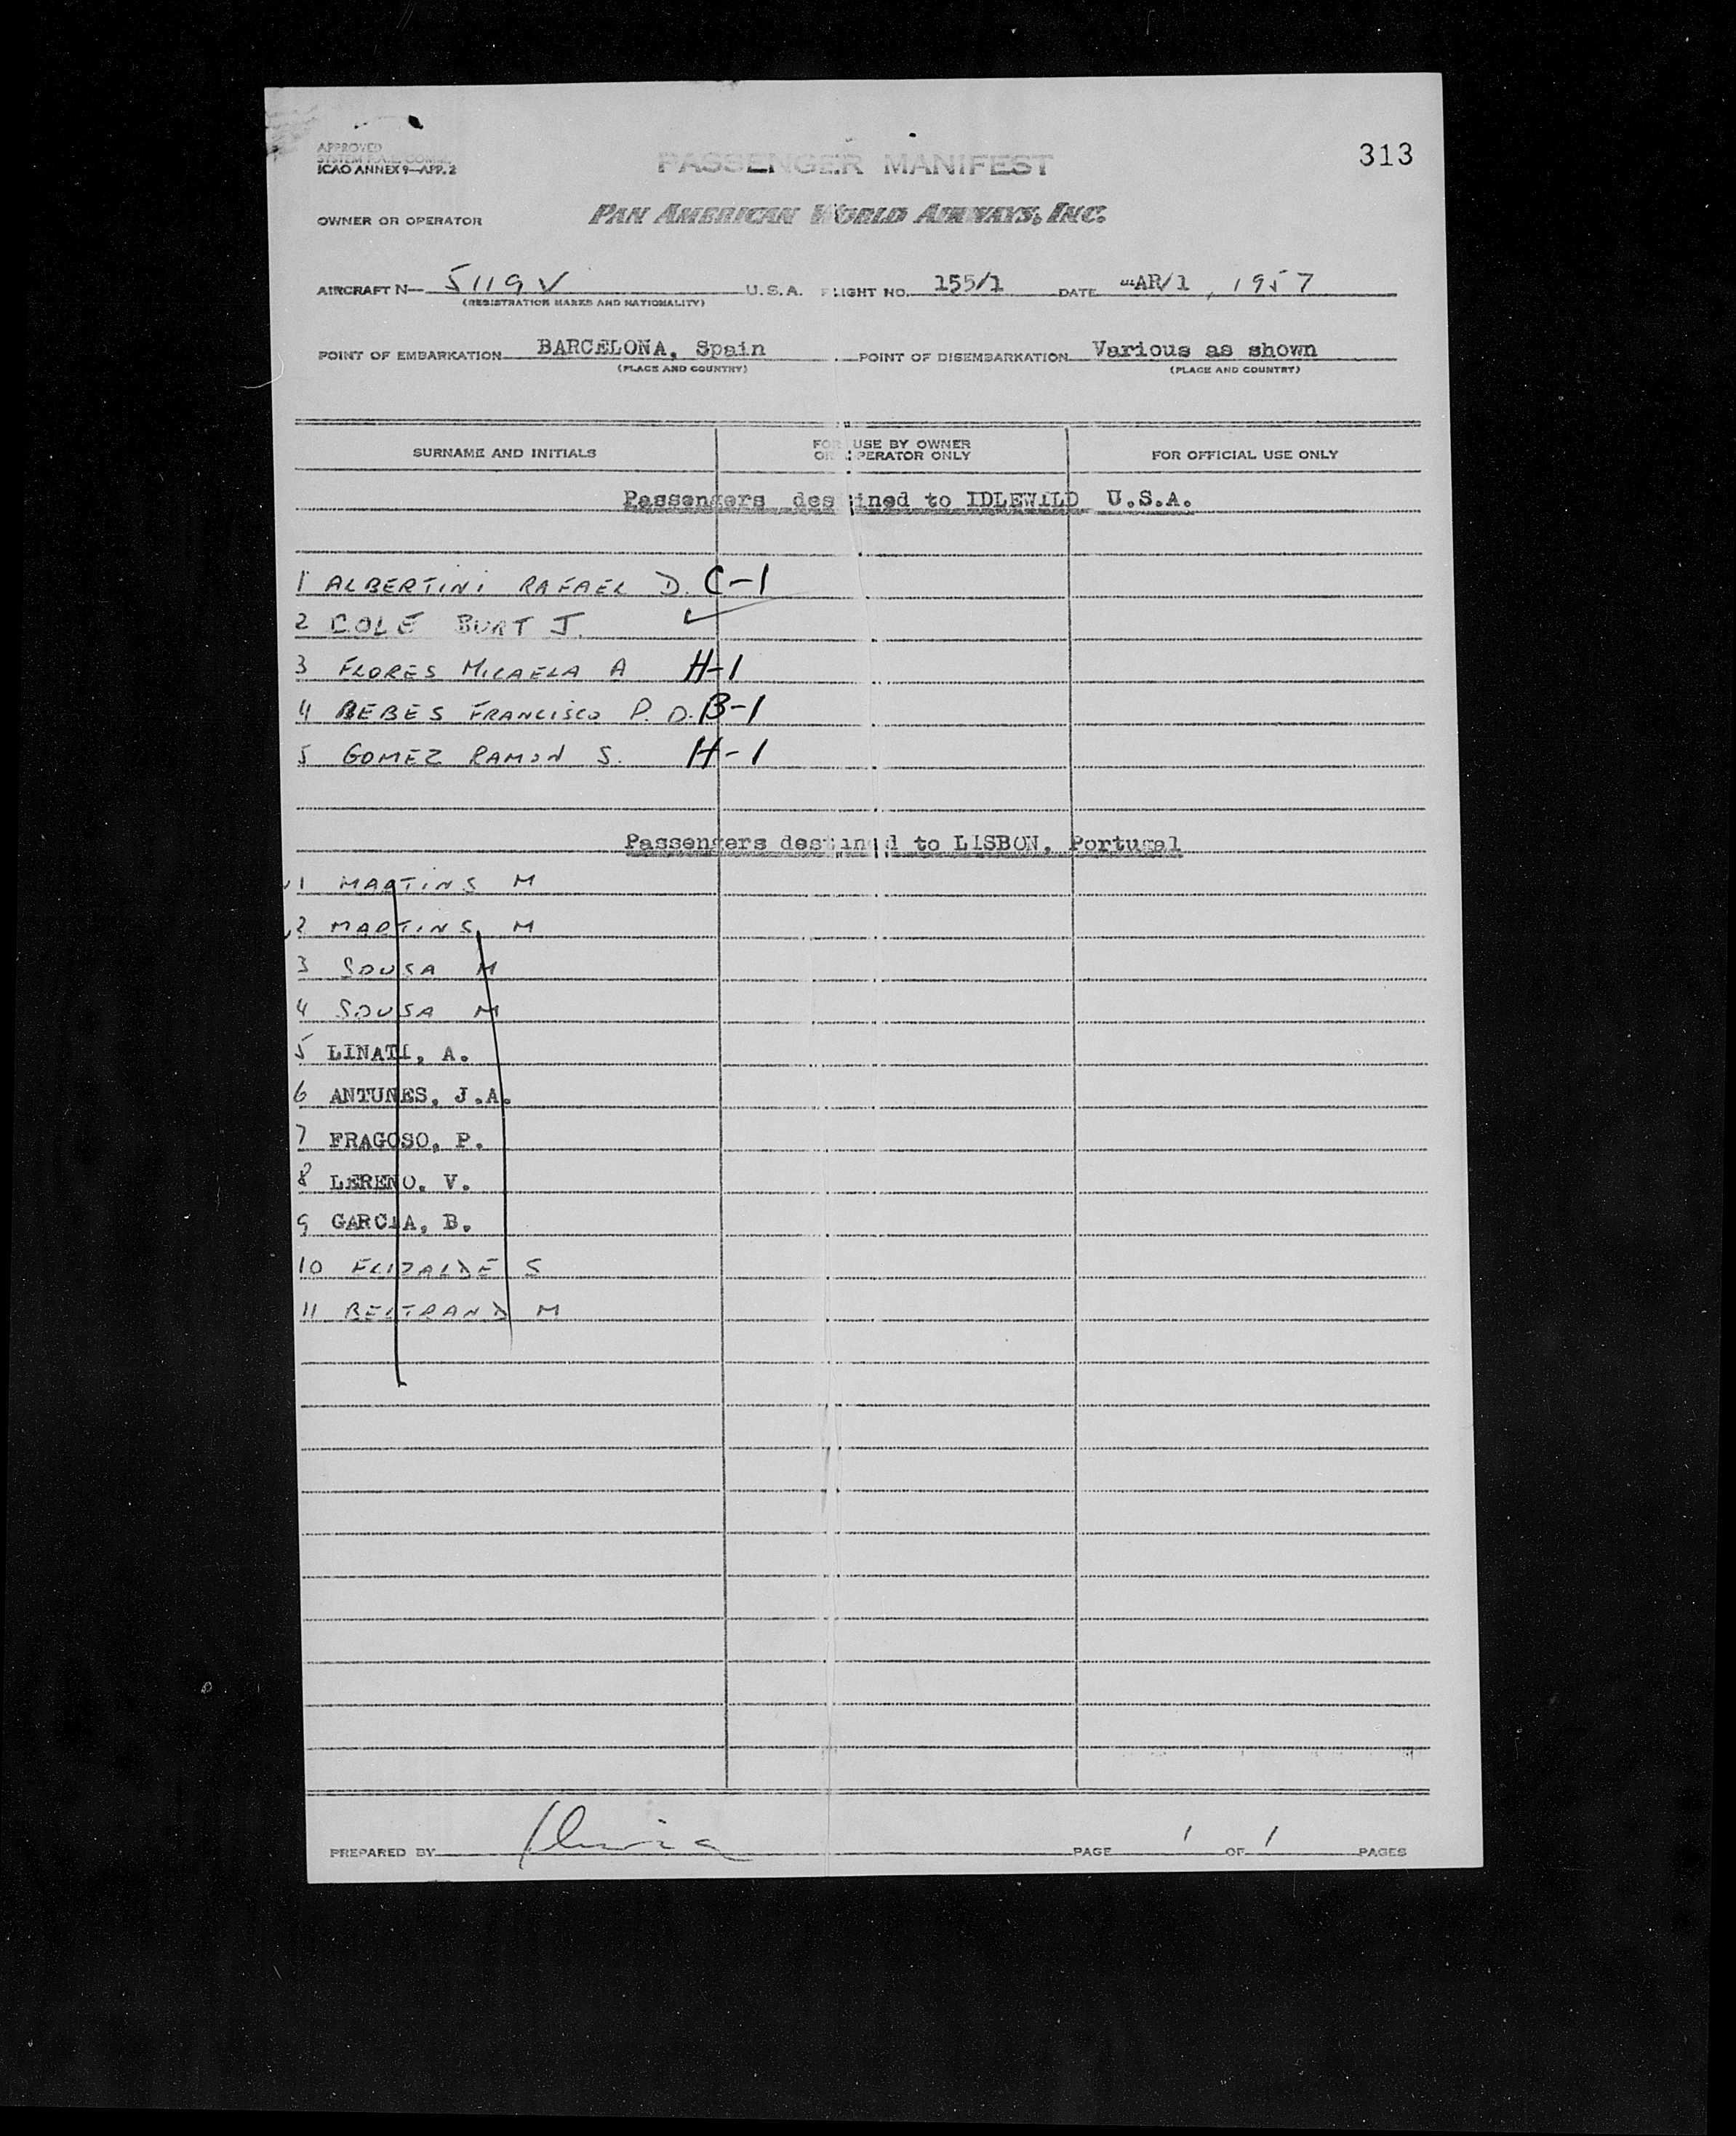 313
APPROVED
SYSTEM P.A.L. COMM.
ICAO ANNEX 9—APP. 2
PASSENGER MANIFEST
OWNER OR OPERATOR PAN AMERICAN WORLD AIRWAYS, INC.
AIRCRAFT N— 5119V U.S.A. FLIGHT NO. 155/1 DATE MAR/1, 1957
(REGISTRATION MARKS AND NATIONALITY)
POINT OF EMBARKATION BARCELONA, Spain POINT OF DISEMBARKATION Various as shown
(PLACE AND COUNTRY) (PLACE AND COUNTRY)
SURNAME AND INITIALS FOR USE BY OWNER OR OPERATOR ONLY FOR OFFICIAL USE ONLY
Passengers destined to IDLEWILD U.S.A.
1 ALBERTINI RAFAEL D. C-1
2 COLE BURT J. ✓
3 FLORES MICAELA A H-1
4 BEBES FRANCISCO P. D. B-1
5 GOMEZ RAMON S. H-1
Passengers destined to LISBON, Portugal
1 MARTINS M
2 MARTINS M
3 SOUSA M
4 SOUSA M
5 LINATI, A.
6 ANTUNES, J.A.
7 FRAGOSO, P.
8 LERENO, V.
9 GARCIA, B.
10 ELIZALDE S
11 BELTRAND M
PREPARED BY PAGE 1 OF 1 PAGES